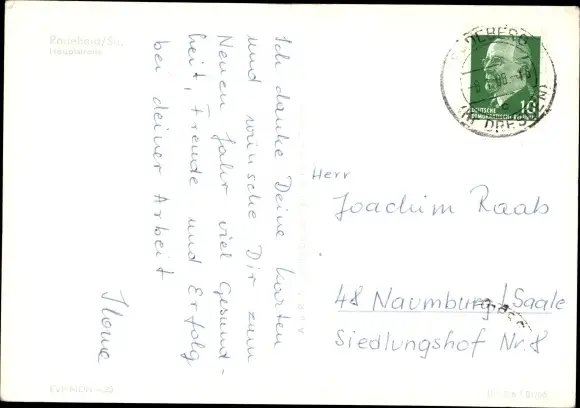 Ich danke Deine Karten
und wünsche Dir zum
Neuen Jahr viel Gesund-
heit, Freude und Erfolg
bei deiner Arbeit
Ilona
Hauptstraße
10
DEUTSCHE
DEMOKRATISCHE REPUBLIK
Herr
Joachim Raab
48 Naumburg/Saale
Siedlungshof Nr. 8